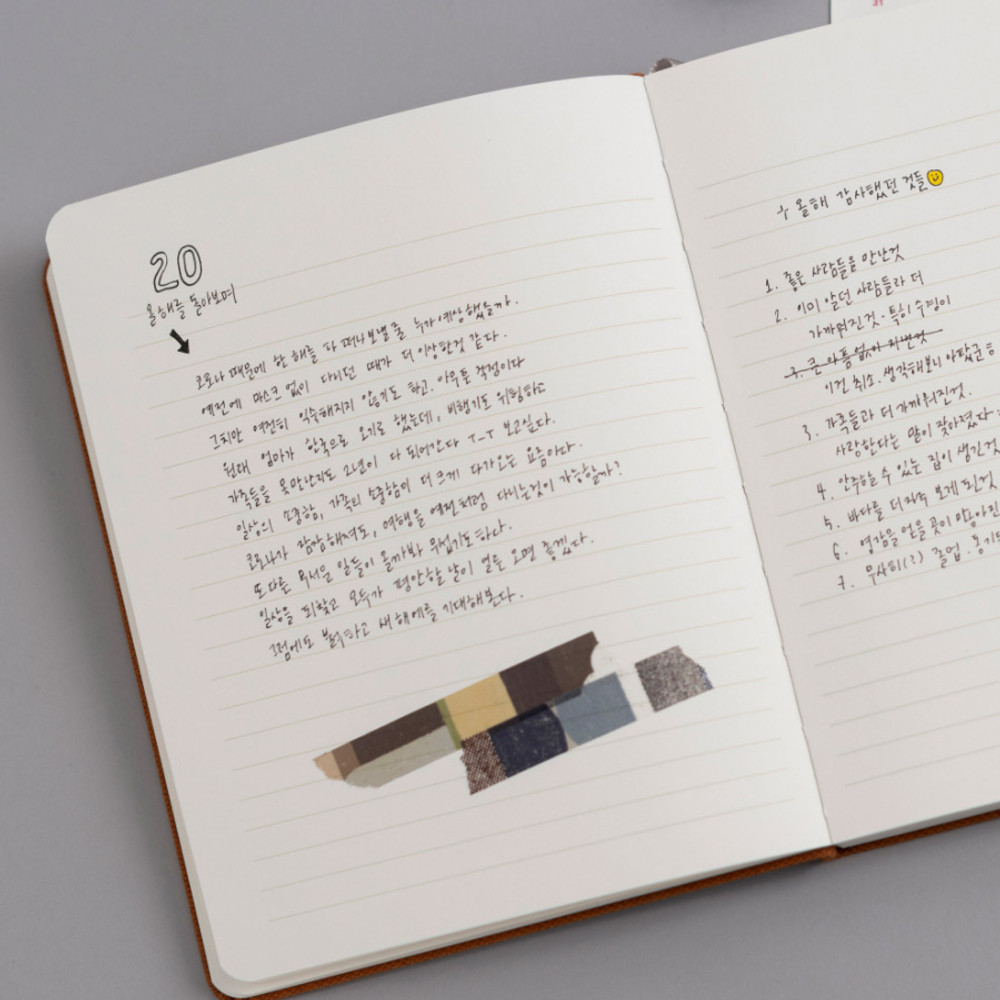 20
올해를 돌아보며
코로나 때문에 한 해를 다 떠나보낼 줄 누가 예상했을까.
예전에 마스크 없이 다니던 때가 더 이상한것 같다.
그치만 여전히 익숙해지지 않기도 하고. 아무튼 걱정이다
원래 엄마가 한국으로 오기로 했는데, 비행기도 위험하고
가족들을 못만난지도 2년이 다 되어간다 T-T 보고싶다.
일상의 소중함, 가족의 소중함이 더 크게 다가오는 요즘이다.
코로나가 잠잠해져도, 여행을 예전처럼 다니는것이 가능할까?
또다른 무서운 일들이 올까봐 무섭기도하다.
일상을 되찾고 모두가 평안할 날이 얼른 오면 좋겠다.
그럼에도 하고 새해에를 기대해본다.
올해 감사했던 것들
1. 좋은 사람들을 만난것
2. 이미 알던 사람들과 더
가까워진것. 특히 수정이
3. 큰 아픔 없이 지낸것
이건 취소. 생각해보니 아팠군
3. 가족들과 더 가까워진것.
사랑한다는 말이 잦아졌다.
4. 안주할 수 있는 집이 생긴것
5. 바다를 더 자주 보게 된것
6. 영감을 얻을 곳이 많아진
7. 무사히(?) 졸업.